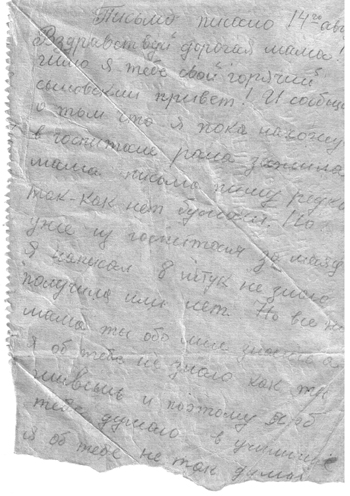 Письмо писано 14го авг
Вздравствуй дорогая мама!
Шлю я тебе свой горячий
сыновский привет! И сообща
о том что я пока нахожу
в госпитале рана зажива
мама письма пишу редко
так-как нет бумаги. Но
уже из госпиталя за
я написал 8 штук не знаю
получила или нет. Но все
мама ты обо мне знаешь а
я об тебе не знаю как ты
живешь и поэтому я об
тебе думаю в училище
я об тебе не так думал